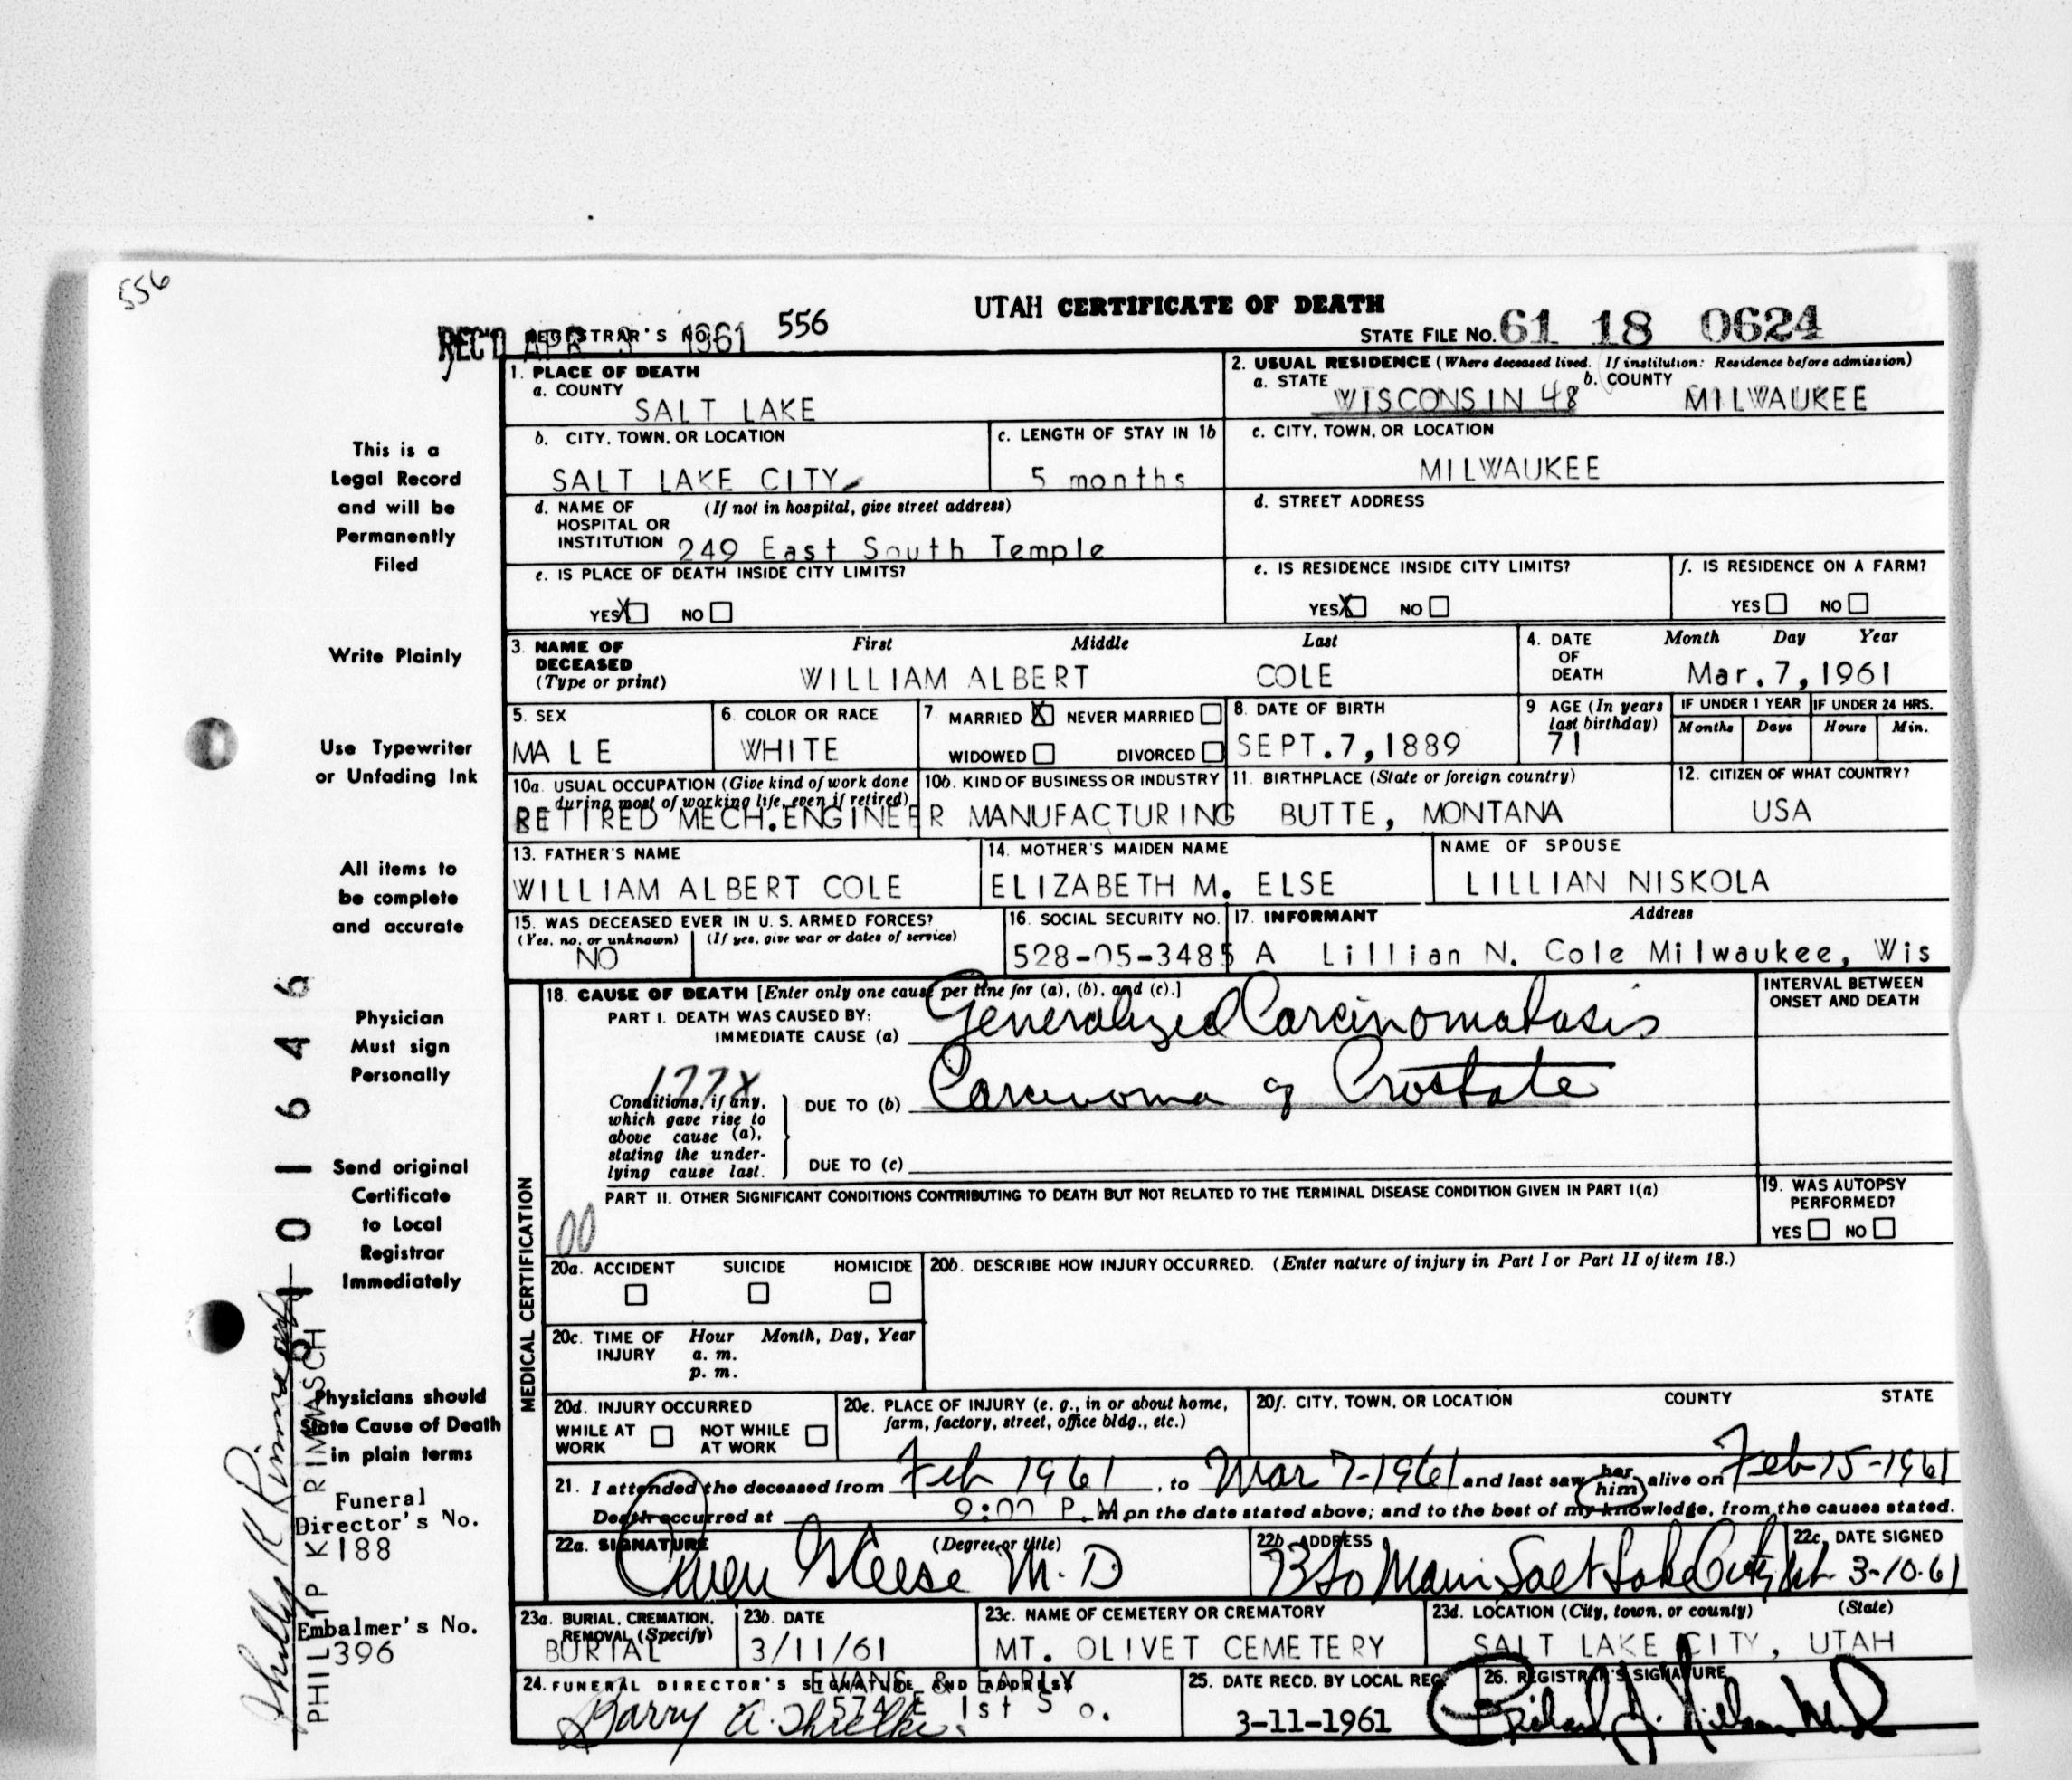 556
UTAH CERTIFICATE OF DEATH
REC'D APR 3 1961 REGISTRAR'S NO. 556
STATE FILE NO. 61 18 0624
1. PLACE OF DEATH
a. COUNTY
SALT LAKE
2. USUAL RESIDENCE (Where deceased lived. If institution: Residence before admission)
a. STATE WISCONSIN 48 b. COUNTY MILWAUKEE
b. CITY, TOWN, OR LOCATION
SALT LAKE CITY
c. LENGTH OF STAY IN 1b
5 months
c. CITY, TOWN, OR LOCATION
MILWAUKEE
d. NAME OF HOSPITAL OR INSTITUTION (If not in hospital, give street address)
249 East South Temple
d. STREET ADDRESS
e. IS PLACE OF DEATH INSIDE CITY LIMITS?
YES X NO
e. IS RESIDENCE INSIDE CITY LIMITS?
YES X NO
f. IS RESIDENCE ON A FARM?
YES NO
3. NAME OF DECEASED (Type or print)
First Middle Last
WILLIAM ALBERT COLE
4. DATE OF DEATH
Month Day Year
Mar. 7, 1961
5. SEX
MALE
6. COLOR OR RACE
WHITE
7. MARRIED X NEVER MARRIED
WIDOWED DIVORCED
8. DATE OF BIRTH
SEPT. 7, 1889
9 AGE (In years last birthday)
71
IF UNDER 1 YEAR
Months Days
IF UNDER 24 HRS.
Hours Min.
10a. USUAL OCCUPATION (Give kind of work done during most of working life, even if retired)
RETIRED MECH. ENGINEER
10b. KIND OF BUSINESS OR INDUSTRY
MANUFACTURING
11. BIRTHPLACE (State or foreign country)
BUTTE, MONTANA
12. CITIZEN OF WHAT COUNTRY?
USA
13. FATHER'S NAME
WILLIAM ALBERT COLE
14. MOTHER'S MAIDEN NAME
ELIZABETH M. ELSE
NAME OF SPOUSE
LILLIAN NISKOLA
15. WAS DECEASED EVER IN U. S. ARMED FORCES?
(Yes, no, or unknown) (If yes, give war or dates of service)
NO
16. SOCIAL SECURITY NO.
528-05-3485 A
17. INFORMANT Address
Lillian N. Cole Milwaukee, Wis
MEDICAL CERTIFICATION
18. CAUSE OF DEATH [Enter only one cause per line for (a), (b), and (c).]
PART I. DEATH WAS CAUSED BY:
IMMEDIATE CAUSE (a) Generalized Carcinomatosis
INTERVAL BETWEEN ONSET AND DEATH
177X
Conditions, if any, which gave rise to above cause (a), stating the underlying cause last.
DUE TO (b) Carcinoma of Prostate
DUE TO (c)
PART II. OTHER SIGNIFICANT CONDITIONS CONTRIBUTING TO DEATH BUT NOT RELATED TO THE TERMINAL DISEASE CONDITION GIVEN IN PART I(a)
00
19. WAS AUTOPSY PERFORMED?
YES NO
20a. ACCIDENT SUICIDE HOMICIDE
20b. DESCRIBE HOW INJURY OCCURRED. (Enter nature of injury in Part I or Part II of item 18.)
20c. TIME OF INJURY Hour Month, Day, Year
a. m.
p. m.
20d. INJURY OCCURRED
WHILE AT WORK NOT WHILE AT WORK
20e. PLACE OF INJURY (e. g., in or about home, farm, factory, street, office bldg., etc.)
20f. CITY, TOWN, OR LOCATION COUNTY STATE
21. I attended the deceased from Feb 1961, to Mar 7-1961 and last saw her him alive on Feb 15-1961
Death occurred at 9:00 P.M on the date stated above; and to the best of my knowledge, from the causes stated.
22a. SIGNATURE (Degree or title)
Owen G Reese M. D
22b. ADDRESS
Main Salt Lake City Ut
22c. DATE SIGNED
3-10-61
23a. BURIAL, CREMATION, REMOVAL (Specify)
BURIAL
23b. DATE
3/11/61
23c. NAME OF CEMETERY OR CREMATORY
MT. OLIVET CEMETERY
23d. LOCATION (City, town, or county) (State)
SALT LAKE CITY, UTAH
24. FUNERAL DIRECTOR'S SIGNATURE AND ADDRESS
EVANS & EARLY
574 E 1st So.
Barry A.
25. DATE RECD. BY LOCAL REG.
3-11-1961
26. REGISTRAR'S SIGNATURE
This is a
Legal Record
and will be
Permanently
Filed
Write Plainly
Use Typewriter
or Unfading Ink
All items to
be complete
and accurate
Physician
Must sign
Personally
Send original
Certificate
to Local
Registrar
Immediately
Physicians should
State Cause of Death
in plain terms
Funeral
Director's No.
188
Embalmer's No.
396
PHILLIP K RIMMASCH